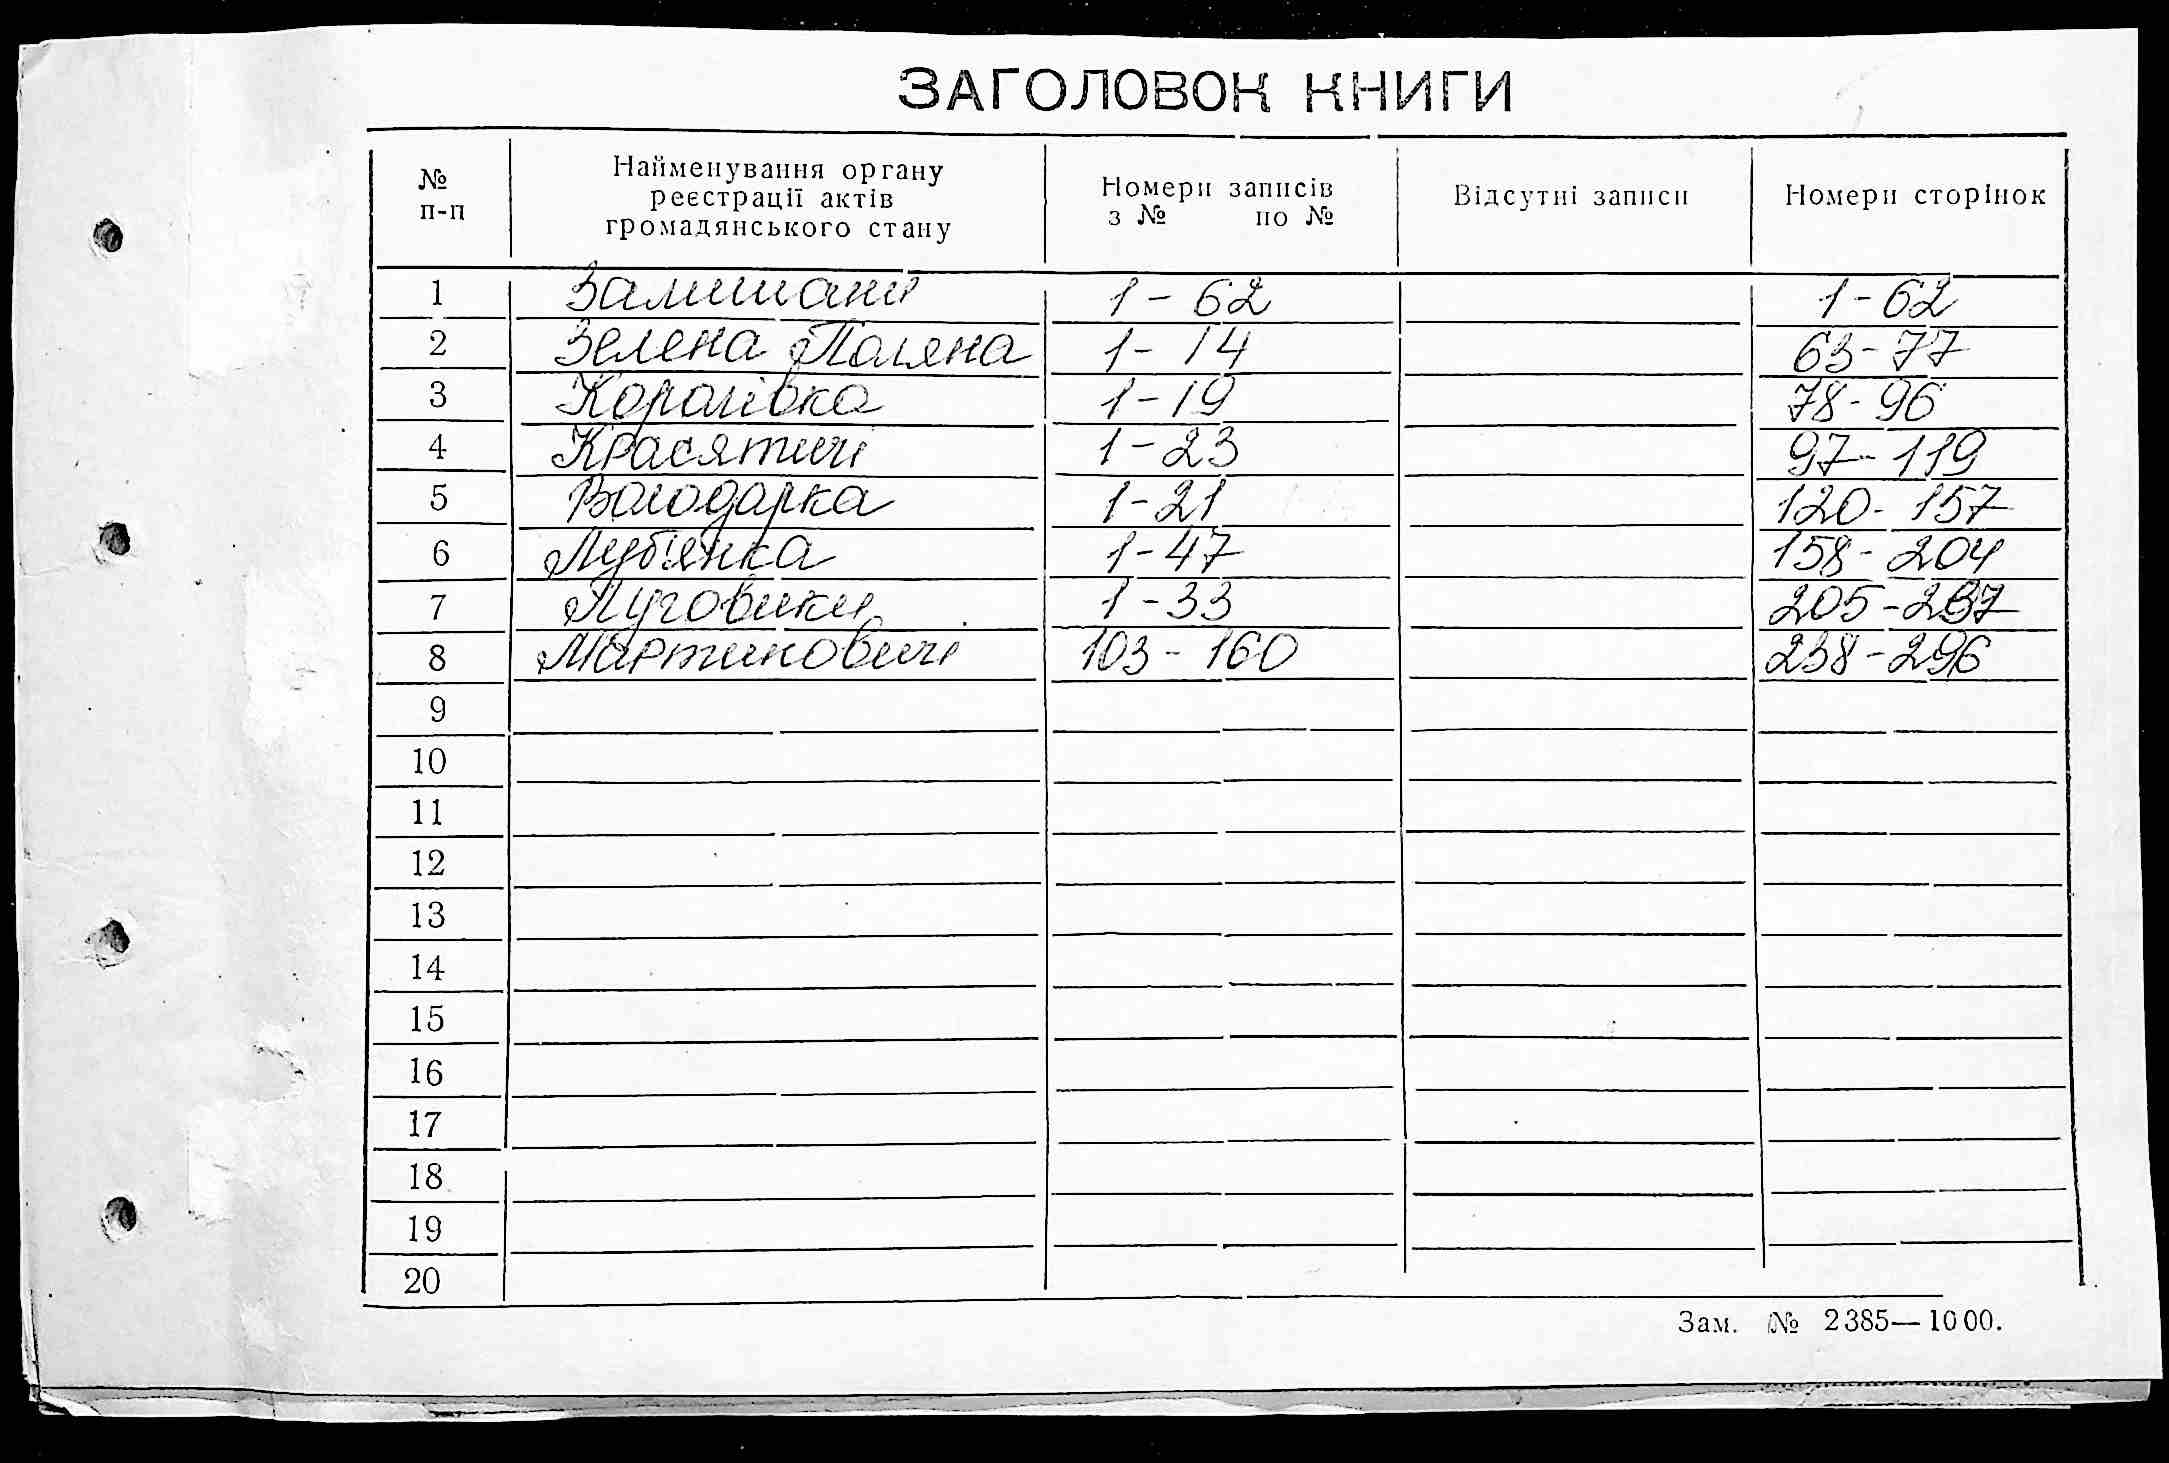 ЗАГОЛОВОК КНИГИ
№ п-п | Найменування органу реєстрації актів громадянського стану | Номери записів з № по № | Відсутні записи | Номери сторінок
1 Залишани 1-62 1-62
2 Зелена Поляна 1-14 63-77
3 Королівка 1-19 78-96
4 Красятичі 1-23 97-119
5 Володарка 1-21 120-157
6 Луб'янка 1-47 158-204
7 Луговики 1-33 205-237
8 Мартиновичі 103-160 238-296
9
10
11
12
13
14
15
16
17
18
19
20
Зам. № 2385—1000.